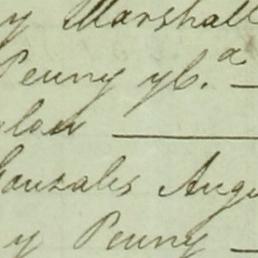 y Marshall
Penny yb.a
low
Gonzales Angu
y Penny